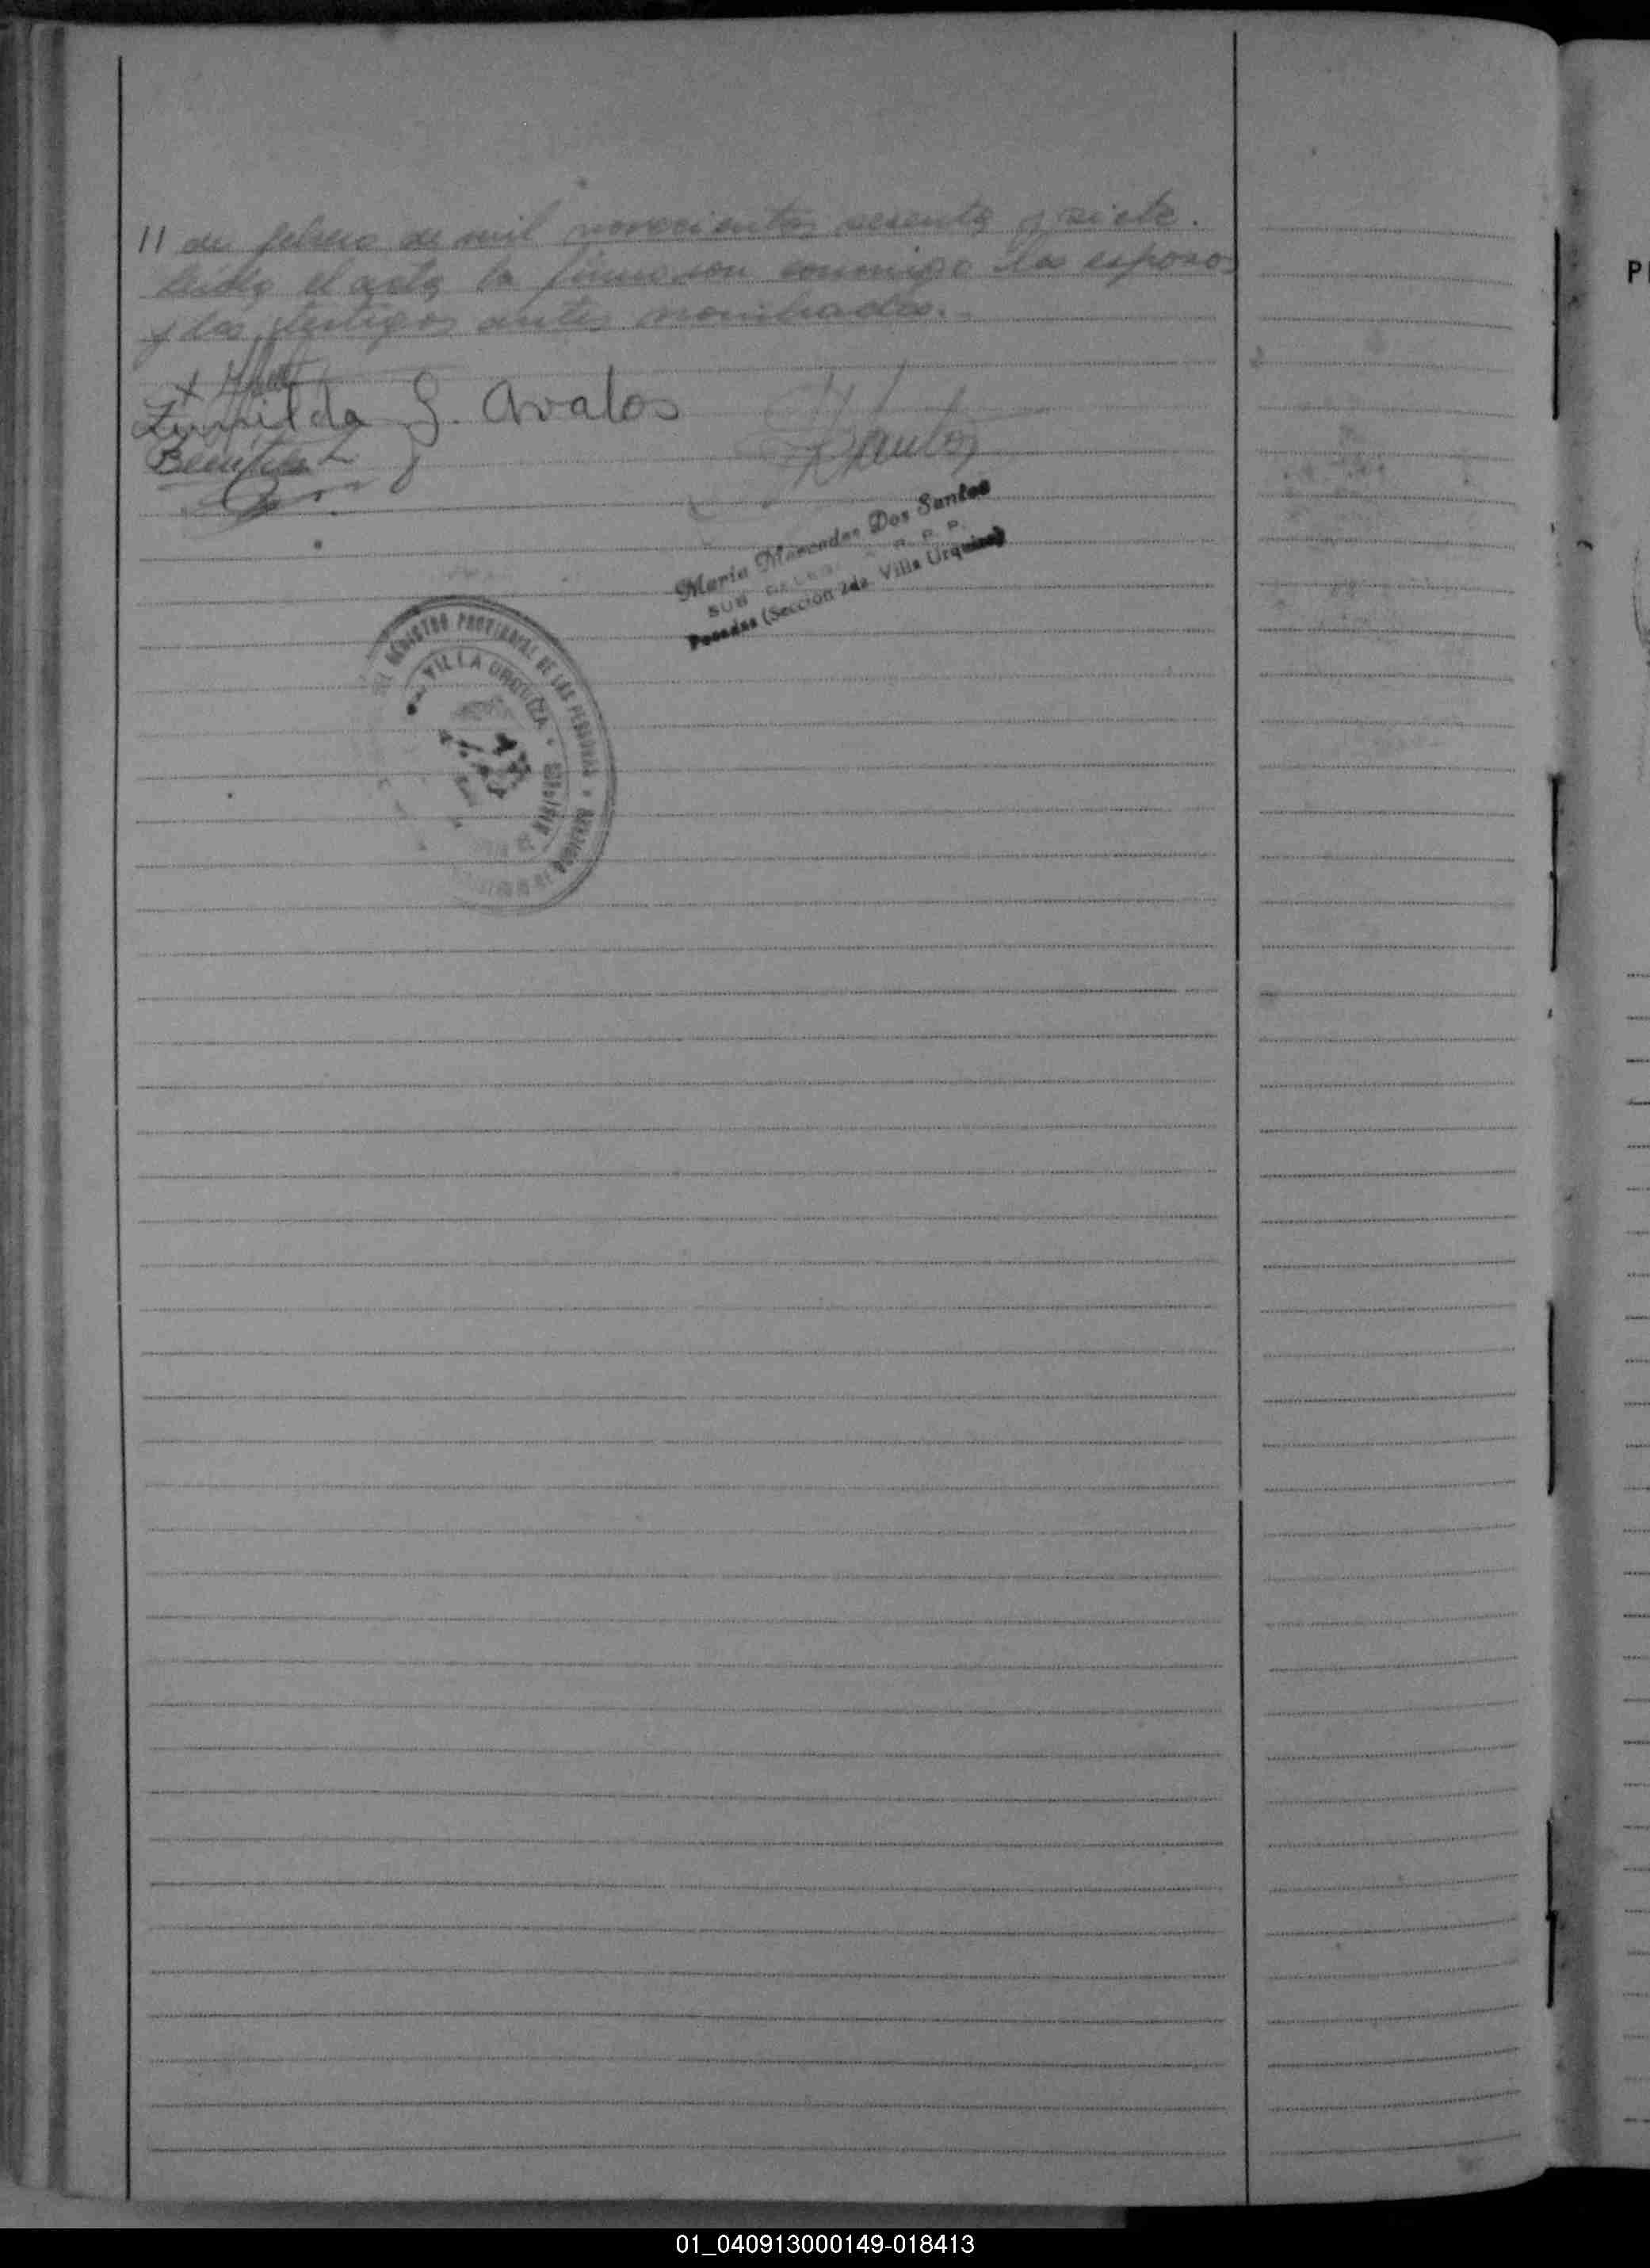 11 de febrero de mil novecientos sesenta y siete.
Leída el acta la firmaron conmigo los esposos
y los testigos antes nombrados.
S. Avalos
Benitez
Dos Santos
Maria Mercedes Dos Santos
SUB R. P. P.
Posadas (Sección 2da. Villa Urquiza)
REGISTRO PROVINCIAL DE LAS PERSONAS
VILLA URQUIZA
P
01_040913000149-018413